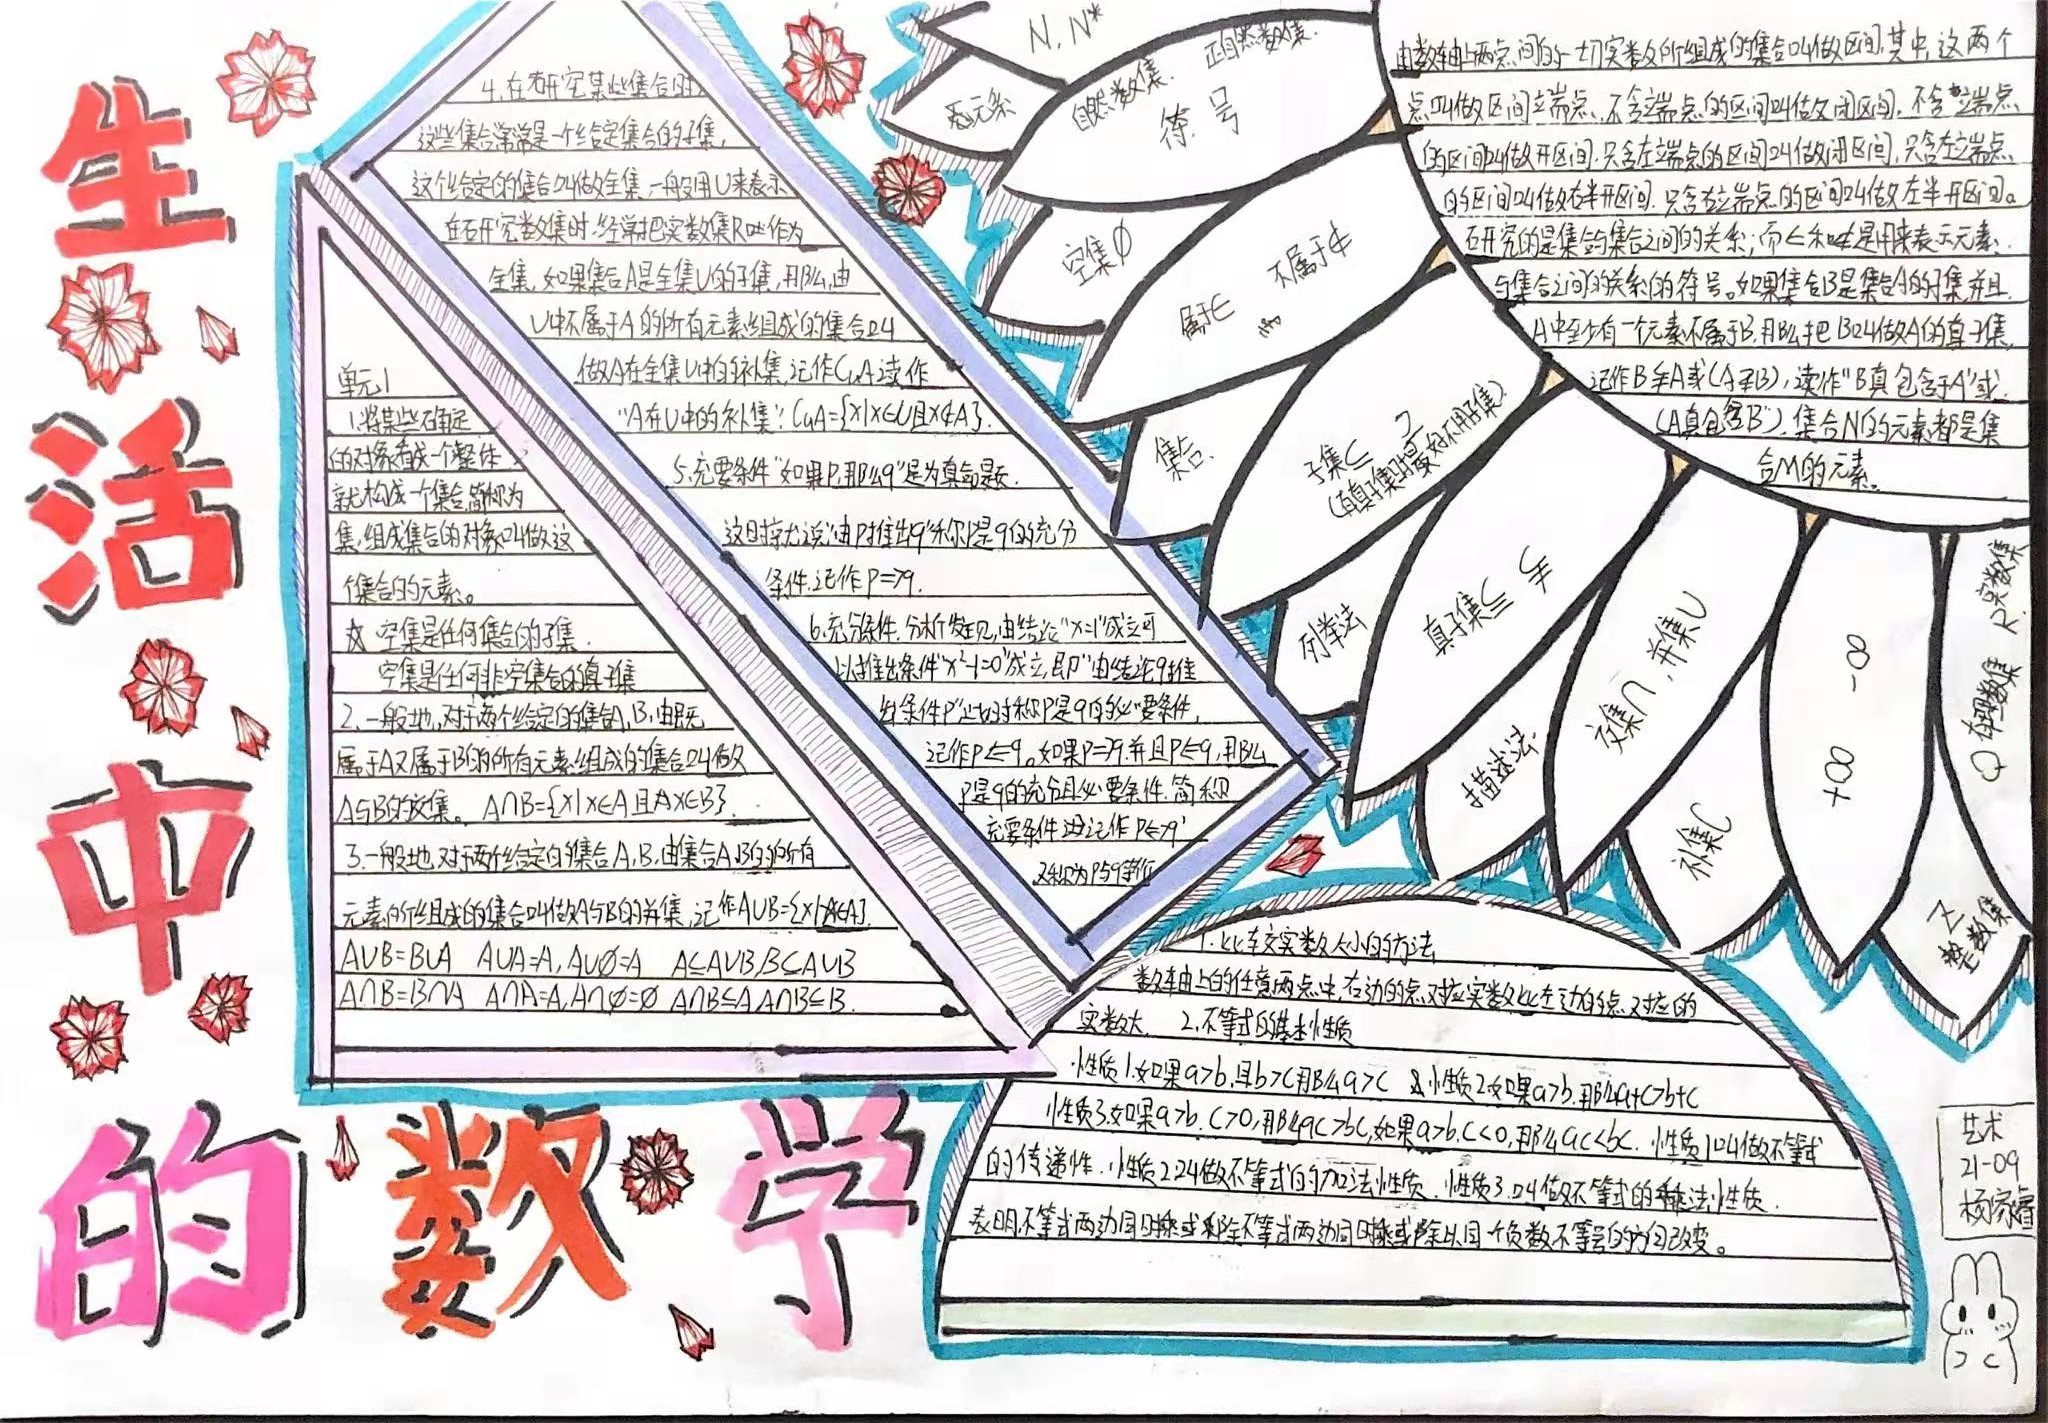 生活中的数学
单元1
1.将某些确定
的对象看成一个整体
就构成一个集合,简称为
集,组成集合的对象叫做这
个集合的元素。
☆ 空集是任何集合的子集.
空集是任何非空集合的真子集
2.一般地,对于两个给定的集合A,B,由既
属于A又属于B的所有元素组成的集合叫做
A与B的交集。 A∩B={x|x∈A且x∈B}.
3.一般地,对于两个给定的集合A,B,由集合A,B的所有
元素所组成的集合叫做A与B的并集,记作A∪B={x|x∈A}.
A∪B=B∪A A∪A=A, A∪∅=A A⊆A∪B,B⊆A∪B
A∩B=B∩A A∩A=A,A∩∅=∅ A∩B⊆A A∩B⊆B.
4.在研究某些集合时
这些集合常常是一个给定集合的子集,
这个给定的集合叫做全集,一般用U来表示
在研究数集时,经常把实数集R作为
全集,如果集合A是全集U的子集,那么,由
U中不属于A的所有元素组成的集合叫
做A在全集U中的补集,记作CuA读作
"A在U中的补集": CuA={x|x∈U且x∉A}.
5.充要条件"如果P,那么q"是为真命题.
这时就说"由P推出q"称P是q的充分
条件.记作P=>q.
6.充分条件.分析发现,由结论"x=1"成立可
以推出条件"x²-1=0"成立,即"由结论q推
出条件P"此时称P是q的必要条件,
记作P<=q。如果P=>q.并且P<=q,那么
P是q的充分且必要条件.简称
充要条件 记作P<=>q"
又称为P与q等价
N, N*
自然数集. 正自然数集.
符号
元素
空集∅
属于∈ 不属于∉
集合.
子集⊆
列举法
真子集
描述法.
交集∩,并集∪
补集C
+∞ -∞
Q 有理数集 R.实数集
Z
整数集
由数轴上两点间的一切实数所组成的集合叫做区间,其中,这两个
点叫做区间端点,不含端点的区间叫做闭区间,不含端点
的区间叫做开区间.只含左端点的区间叫做闭区间,只含左端点
的区间叫做右半开区间.只含右端点的区间叫做左半开区间。
研究的是集合与集合之间的关系;而∈和∉是用来表示元素.
与集合之间的关系的符号。如果集合B是集合A的子集,并且.
A中至少有一个元素不属于B,那么把B叫做A的真子集,
记作B⫋A或(A⫌B),读作"B真包含于A"或
(A真包含B"). 集合N的元素都是集
合M的元素。
1.比较实数大小的方法
数轴上的任意两点中,右边的点对应实数比左边的点对应的
实数大. 2.不等式的基本性质
性质1.如果a>b,且b>c那么a>c &性质2.如果a>b.那么a+c>b+c
性质3.如果a>b.c>0,那么ac>bc,如果a>b.c<0,那么ac<bc. 性质1叫做不等式
的传递性.性质2叫做不等式的加法性质.性质3.叫做不等式的乘法性质.
表明,不等式两边同时乘或除不等式两边同时乘或除以同一个负数不等号的方向改变。
艺术
21-09
杨家睿